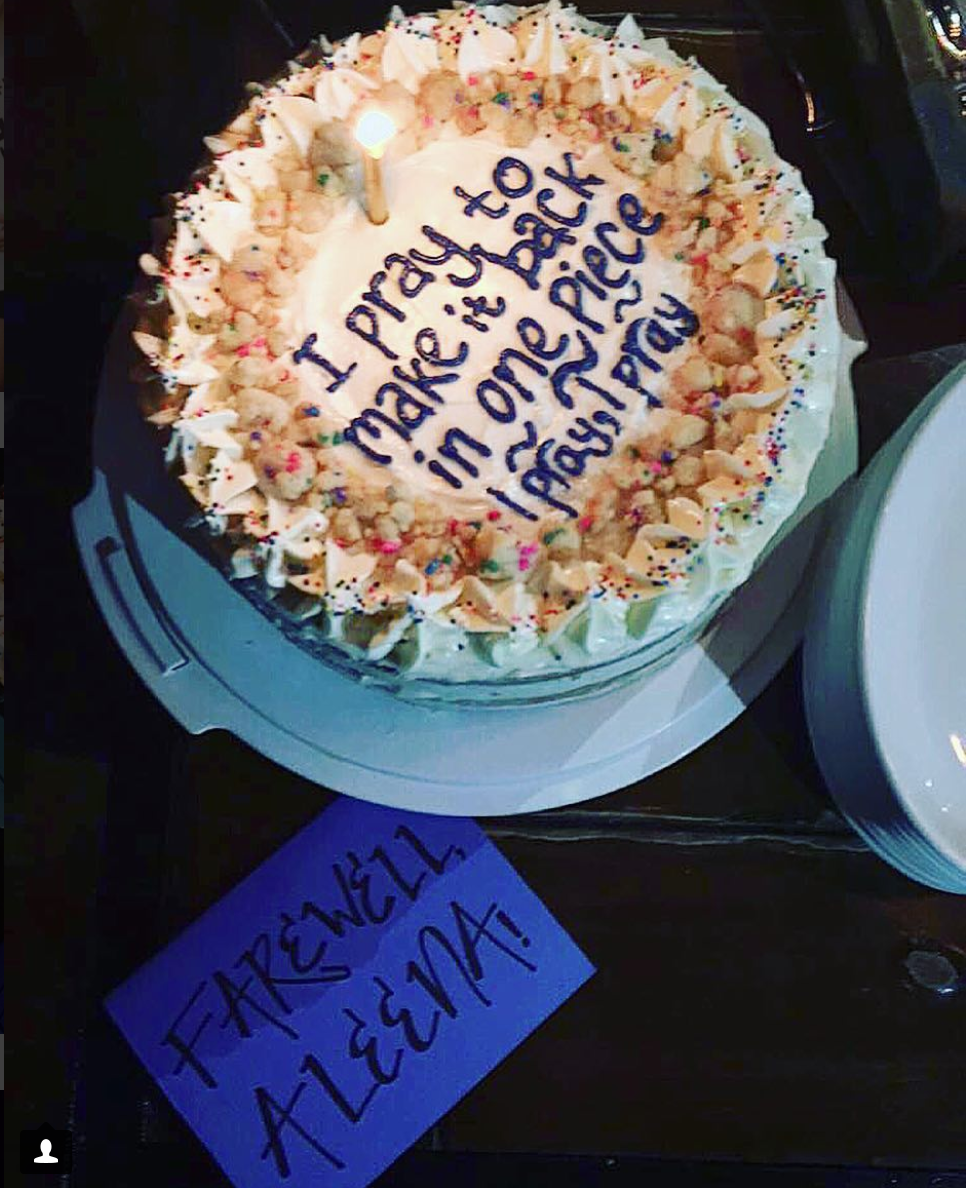 I pray to
make it back
in one piece
~ ~ ~
I pray, I pray
FAREWELL,
ALEENA!